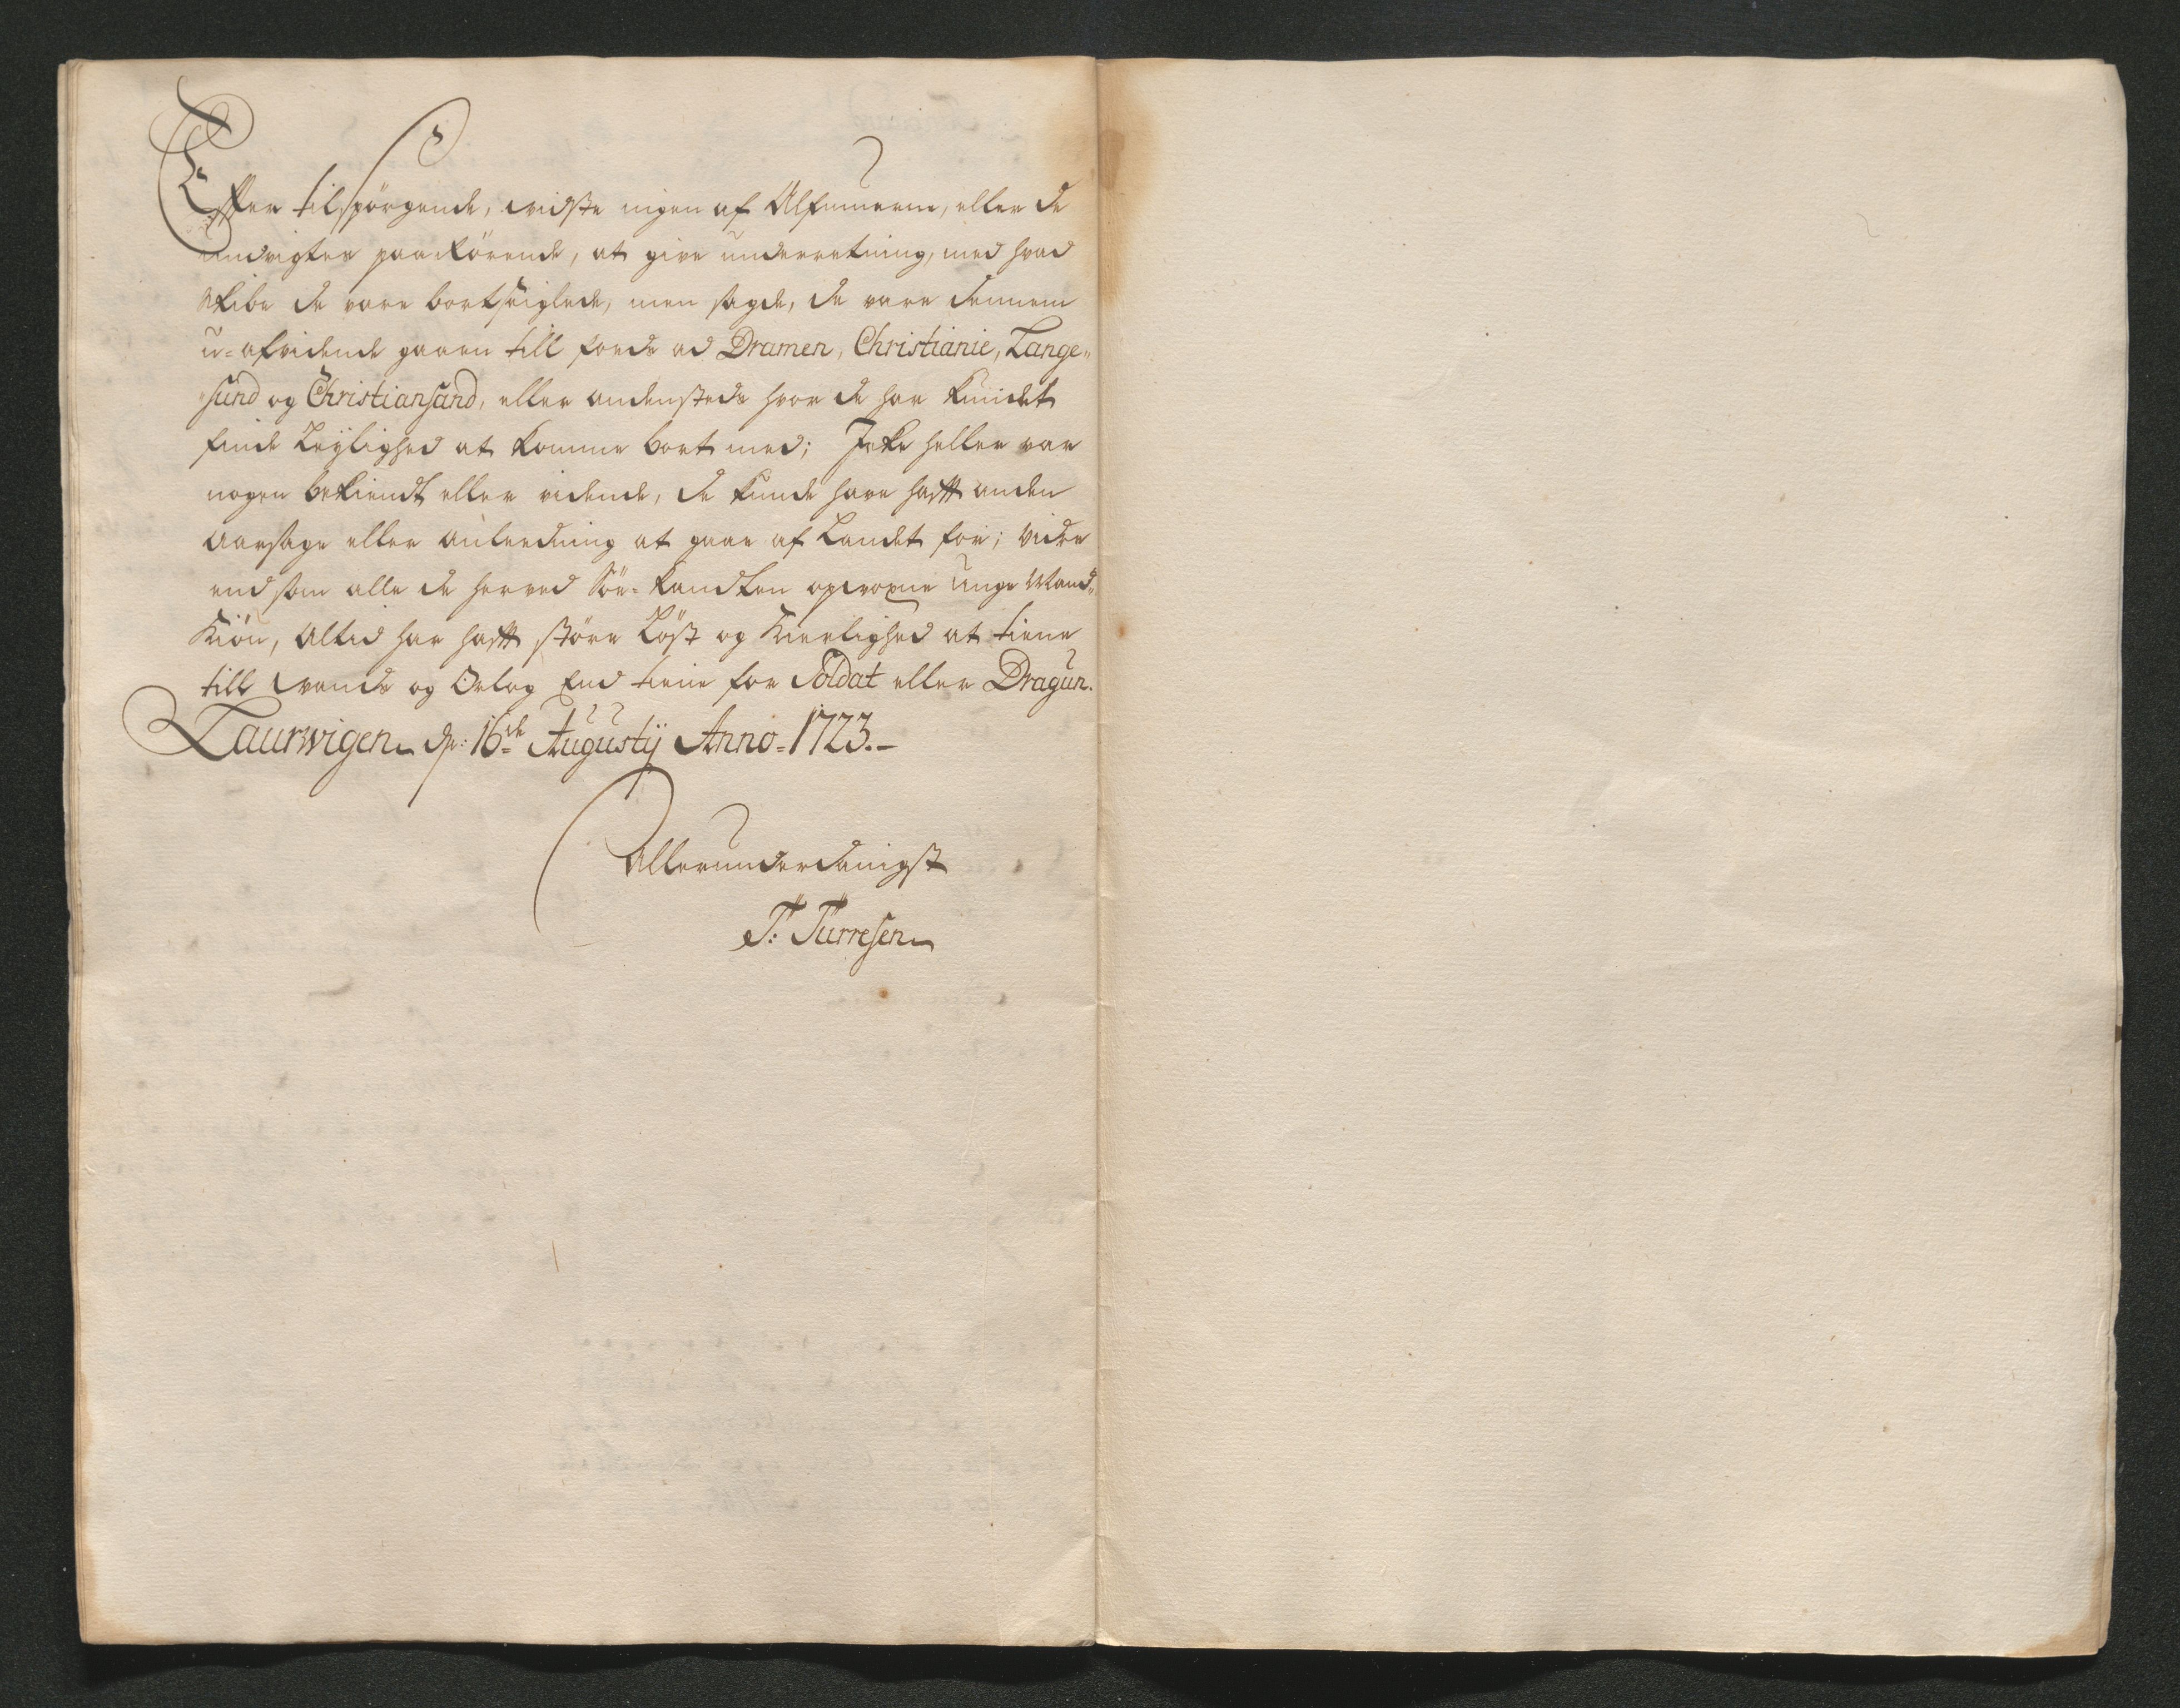 Efter tilspörgende, vidste ingen af Almuerne, eller de
undvigtes paarörende, at give underretning, med hvad
Skibe de vare bortseiglede, men sagde, de vare dennem
u-afvidende gaaen till fods ad Dramen, Christianie, Lange„
sund og Christiansand, eller andensteds hvor de har kundet
finde Leylighed at komme bort med; Icke heller var
nogen bekiendt eller vidende, de kunde have hafft anden
Aarsage eller anleedning at gaae af Landet for; Vidre
end som alle de her ved Söe-kandten opvoxne Unge Mand„
Kiön, Altid har hafft störe Löst og Kierlighed at tiene
till vands og Orlog End tiene for Soldat eller Dragun.
Laurwigen d: 16de Augustij Anno-1723.-
Allerunderdanigst
T: Türresen